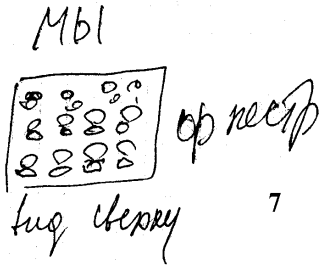 МЫ
оркестр
вид сверху
7